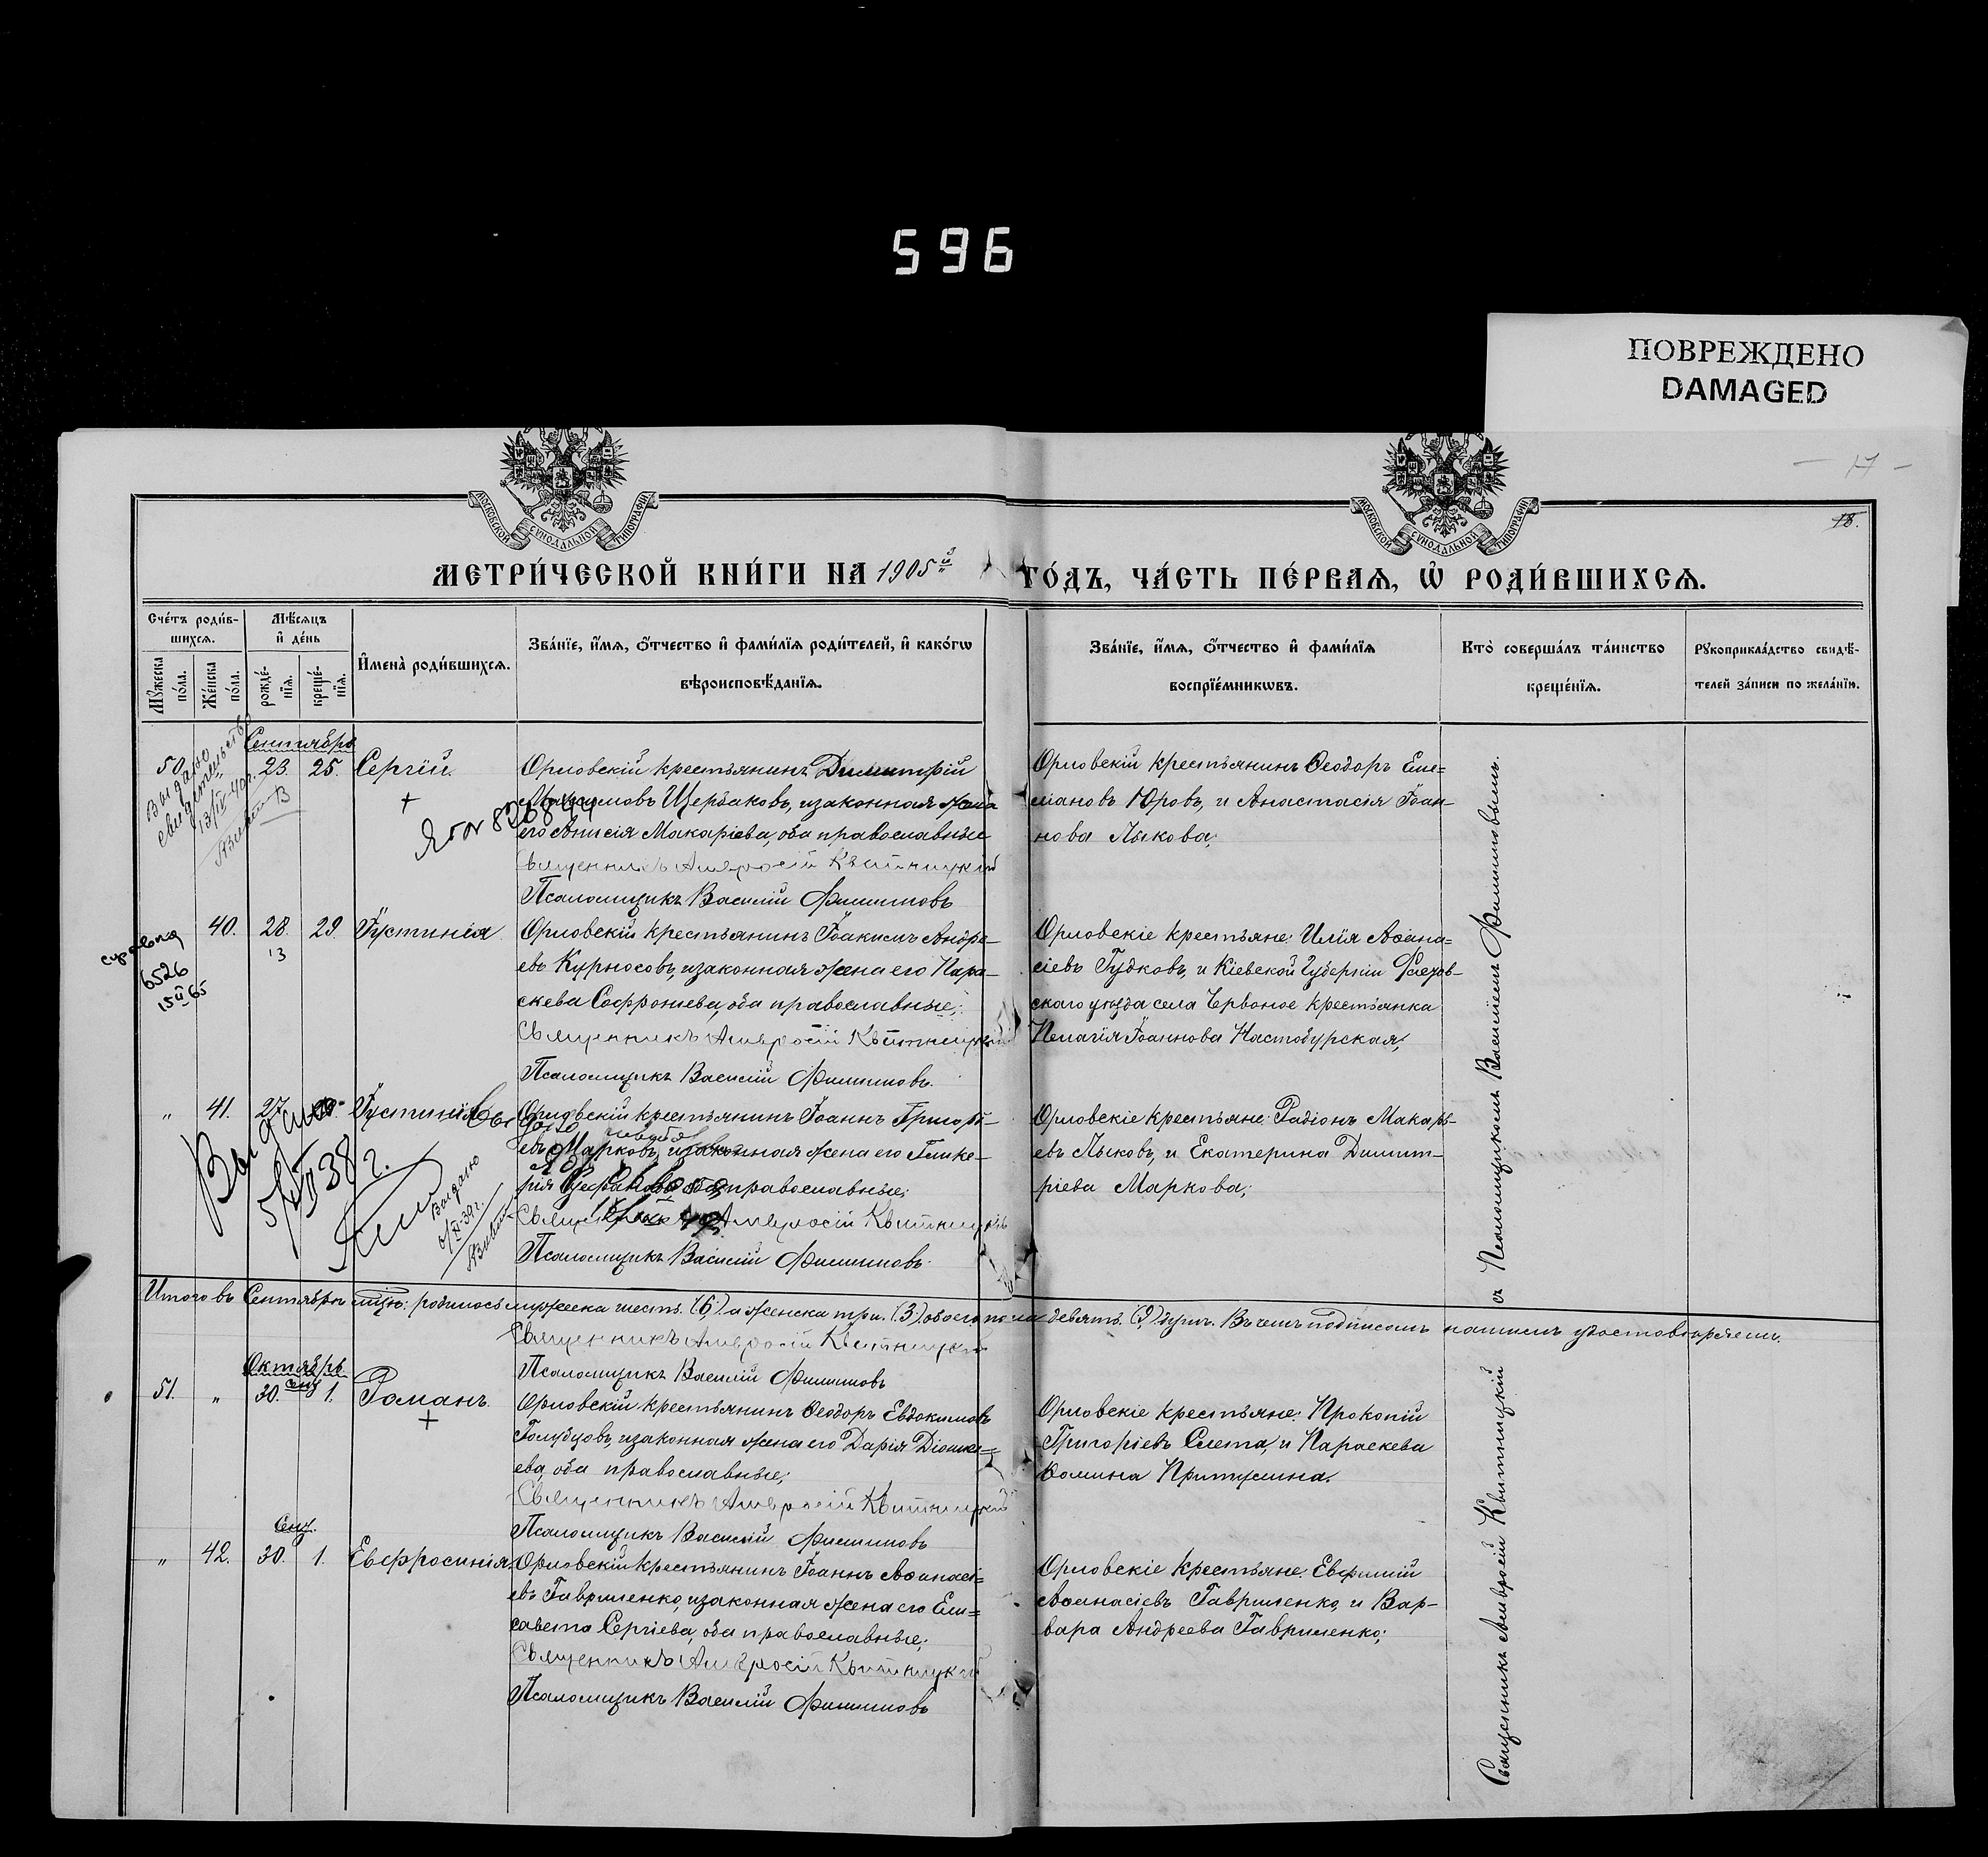 596
ПОВРЕЖДЕНО
DAMAGED
- 17 -
18.
МОСКОВСКОЙ СѴНОДАЛЬНОЙ ТИПОГРАФІИ
МОСКОВСКОЙ СѴНОДАЛЬНОЙ ТИПОГРАФІИ
МЕТРИ́ЧЕСКОЙ КНИ́ГИ НА 1905й ГО́ДЪ, ЧА́СТЬ ПЕ́РВАѦ, Ѽ РОДИ́ВШИХСѦ.
Сче́тъ роди́в-
шихсѧ.
Мѣ́сѧцъ
и҆ де́нь
Мꙋ́жеска
по́ла.
Же́нска
по́ла.
рожде́-
нїѧ.
креще́-
нїѧ.
И҆мена̀ роди́вшихсѧ.
Зва́нїе, и҆́мѧ, ѻ҆́тчество и҆ фами́лїѧ роди́телей, и҆ како́гѡ
вѣроисповѣ́данїѧ.
Зва́нїе, и҆́мѧ, ѻ҆́тчество и҆ фами́лїѧ
воспрїе́мникѡвъ.
Кто̀ соверша́лъ та́инство
креще́нїѧ.
Рꙋкоприкла́дство свидѣ́-
телей за́писи по жела́нїю.
Сентябрь
50. 23. 25. Сергій.
Выдано
свидетельство
13/IV-40г.
Орловскій крестьянинъ Димитрій
Максимовъ Щербаковъ, и законная жена
его Анисія Макаріева, оба православные
Священникъ Амвросій Квитницкій
Псаломщикъ Василій Филиповъ
Орловскій крестьянинъ Ѳеодоръ Еме=
ліановъ Юровъ, и Анастасія Іоан-
нова Лыкова;
40. 28. 29. Іустинія
13
6526
15 II 65
Орловскій крестьянинъ Іоакимъ Андре-
евъ Курносовъ, и законная жена его Пара-
скева Софроніева, оба православные;
Священникъ Амвросій Квитницкій
Псаломщикъ Василій Филиповъ.
Орловскіе крестьяне: Илія Аѳана=
сіевъ Гудковъ, и Кіевской губерніи
скаго уѣзда села Червоное крестьянка
Пелагія Іоаннова Настобурская;
" 41. 27. Іустинія
38г.
Выдано
Орловскій крестьянинъ Іоаннъ Григорі-
евъ Марковъ, и законная жена его Глике-
рія оба православные;
Священникъ Амвросій Квитницкій
Псаломщикъ Василій Филиповъ.
Орловскіе крестьяне: Радіонъ Макарь-
евъ Лыковъ, и Екатерина Димит-
ріева Маркова;
Итого въ Сентябрѣ мцѣ: родилось мужеска шесть. (6.) а женска три. (3.) обоего пола девять. (9) душъ. Въ чемъ подписомъ нашимъ удостовѣряемъ.
Священникъ Амвросій Квитницкій
Псаломщикъ Василій Филиповъ
Октябрь
51. " 30. сен 1. Романъ.
Орловскій крестьянинъ Ѳеодоръ Евдокимовъ
Голубцовъ, и законная жена его Дарія
ева, оба православные;
Священникъ Амвросій Квитницкій
Псаломщикъ Василій Филиповъ
Орловскіе крестьяне: Прокопій
Григоріевъ Слета, и Параскева
Ѳомина Притулина.
Сен.
" 42. 30. 1. Евфросинія.
Орловскій крестьянинъ Іоаннъ Аѳанасі=
евъ Гавриленко, и законная жена его Ели=
савета Сергіева, оба православные;
Священникъ Амвросій Квитницкій
Псаломщикъ Василій Филиповъ
Орловскіе крестьяне: Евфимій
Аѳанасіевъ Гавриленко, и Вар-
вара Андреева Гавриленко;
Священникъ Амвросій Квитницкій съ Псаломщикомъ Василіемъ Филиповымъ.